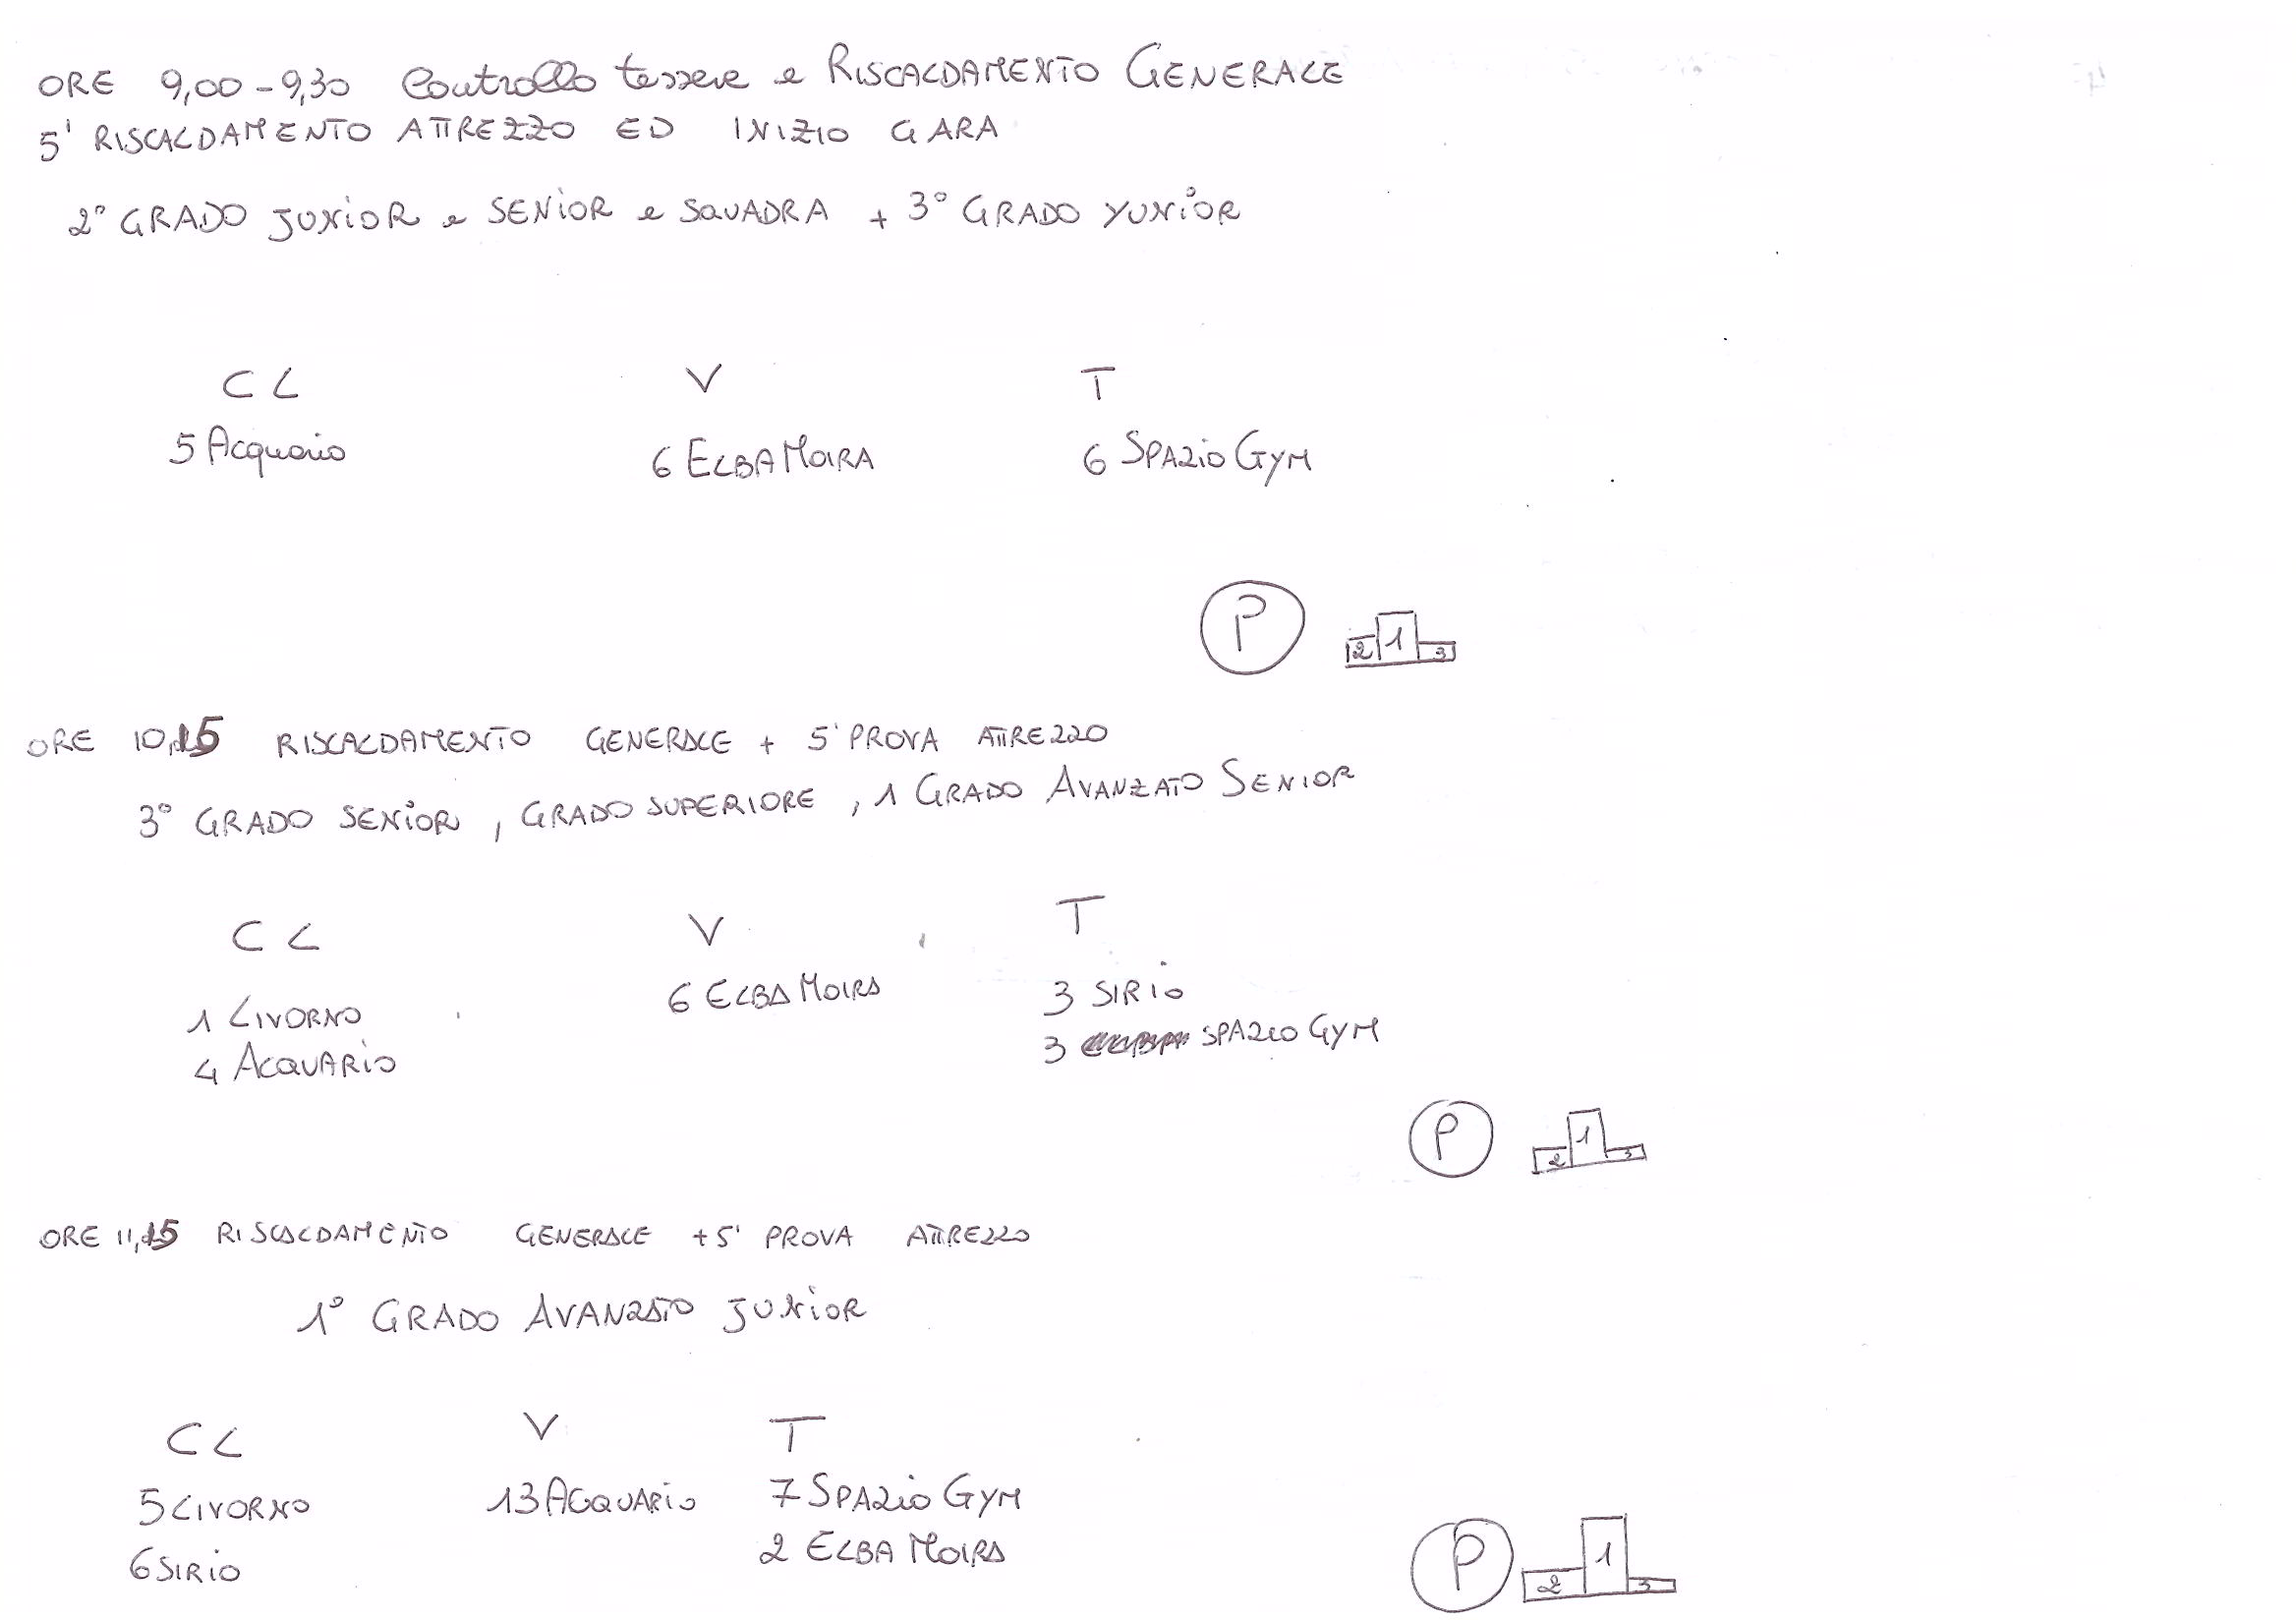 ORE 9,00-9,30 Controllo tessere e RISCALDAMENTO GENERALE
5' RISCALDAMENTO ATTREZZO ED INIZIO GARA
2° GRADO JUNIOR e SENIOR e SQUADRA + 3° GRADO YUNIOR
CL V T
5 Acquario 6 ELBA MOIRA 6 SPAZIO GYM
P 2 1 3
ORE 10,15 RISCALDAMENTO GENERALE + 5' PROVA ATTREZZO
3° GRADO SENIOR, GRADO SUPERIORE, 1 GRADO AVANZATO SENIOR
CL V T
1 LIVORNO 6 ELBA MOIRA 3 SIRIO
4 ACQUARIO 3 SPAZIO GYM
P 2 1 3
ORE 11,15 RISCALDAMENTO GENERALE +5' PROVA ATTREZZO
1° GRADO AVANZATO JUNIOR
CL V T
5 LIVORNO 13 ACQUARIO 7 SPAZIO GYM
6 SIRIO 2 ELBA MOIRA
P 2 1 3